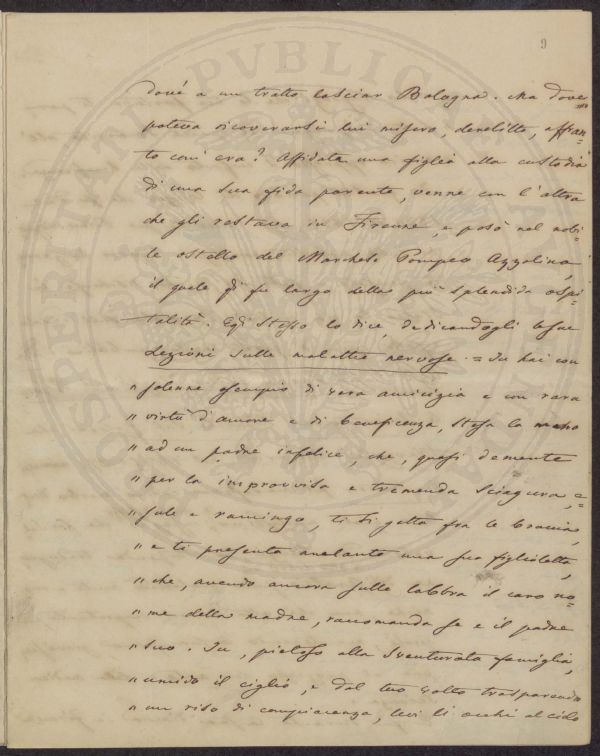 9
dové a un tratto lasciar Bologna. Ma dove
poteva ricoverarsi lui misero, derelitto, affran=
to com' era? Affidata una figlia alla custodia
di una sua fida parente, venne con l'altra
che gli restava in Firenze, e posò nel nobi=
le ostello del Marchese Pompeo Azzolino,
il quale gli fu largo della più splendida ospi=
talità. Egli stesso lo dice, dedicandogli le sue
Lezioni sulle malattie nervose. = Tu hai con
" solenne esempio di vera amicizia e con rara
" virtù d'amore e di beneficenza, stesa la mano
" ad un padre infelice, che, quasi demente
" per la improvvisa e tremenda sciagura, e=
" sule e ramingo, ti si getta fra le braccia,
" e ti presenta anelante una sua figlioletta,
" che, avendo ancora sulle labbra il caro no=
" me della madre, raccomanda se e il padre
" suo. Tu, pietoso alla sventurata famiglia,
" umido il ciglio, e dal tuo volto trasparendo
" un riso di compiacenza, levi li occhi al cielo